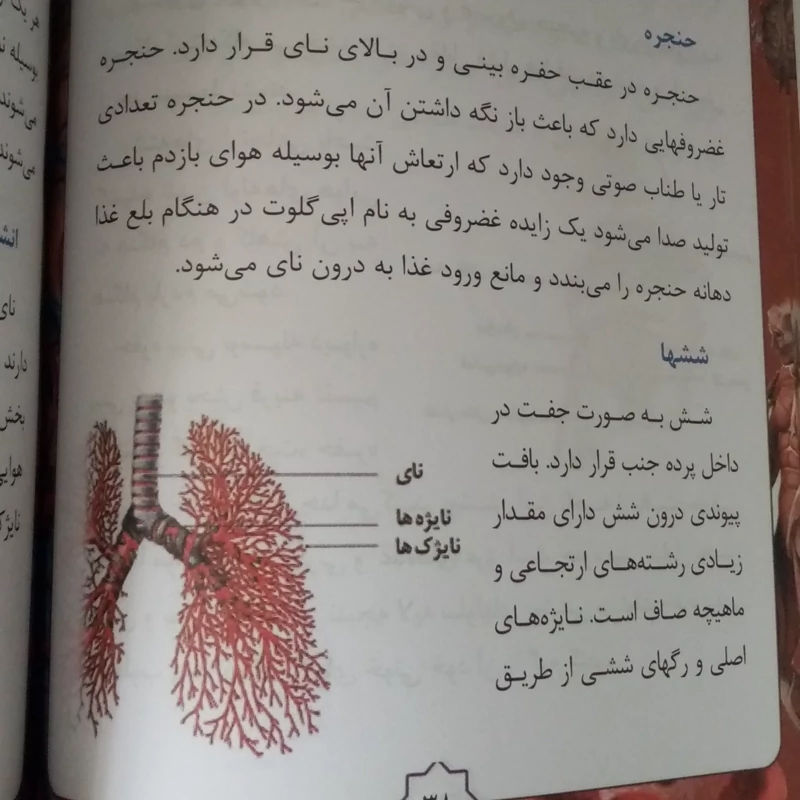 حنجره
حنجره در عقب حفره بینی و در بالای نای قرار دارد. حنجره
غضروفهایی دارد که باعث باز نگه داشتن آن می‌شود. در حنجره تعدادی
تار یا طناب صوتی وجود دارد که ارتعاش آنها بوسیله هوای بازدم باعث
تولید صدا می‌شود یک زایده غضروفی به نام اپی‌گلوت در هنگام بلع غذا
دهانه حنجره را می‌بندد و مانع ورود غذا به درون نای می‌شود.
ششها
شش به صورت جفت در
داخل پرده جنب قرار دارد. بافت
پیوندی درون شش دارای مقدار
زیادی رشته‌های ارتجاعی و
ماهیچه صاف است. نایژه‌های
اصلی و رگهای ششی از طریق
نای
نایژه‌ها
نایژک‌ها
هر یک
بوسیله
می‌شوند
می‌شوند
نای
دارند
بخش